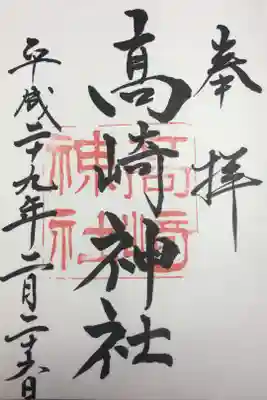 奉拝
高崎神社
平成二十九年二月二十六日
高崎神社